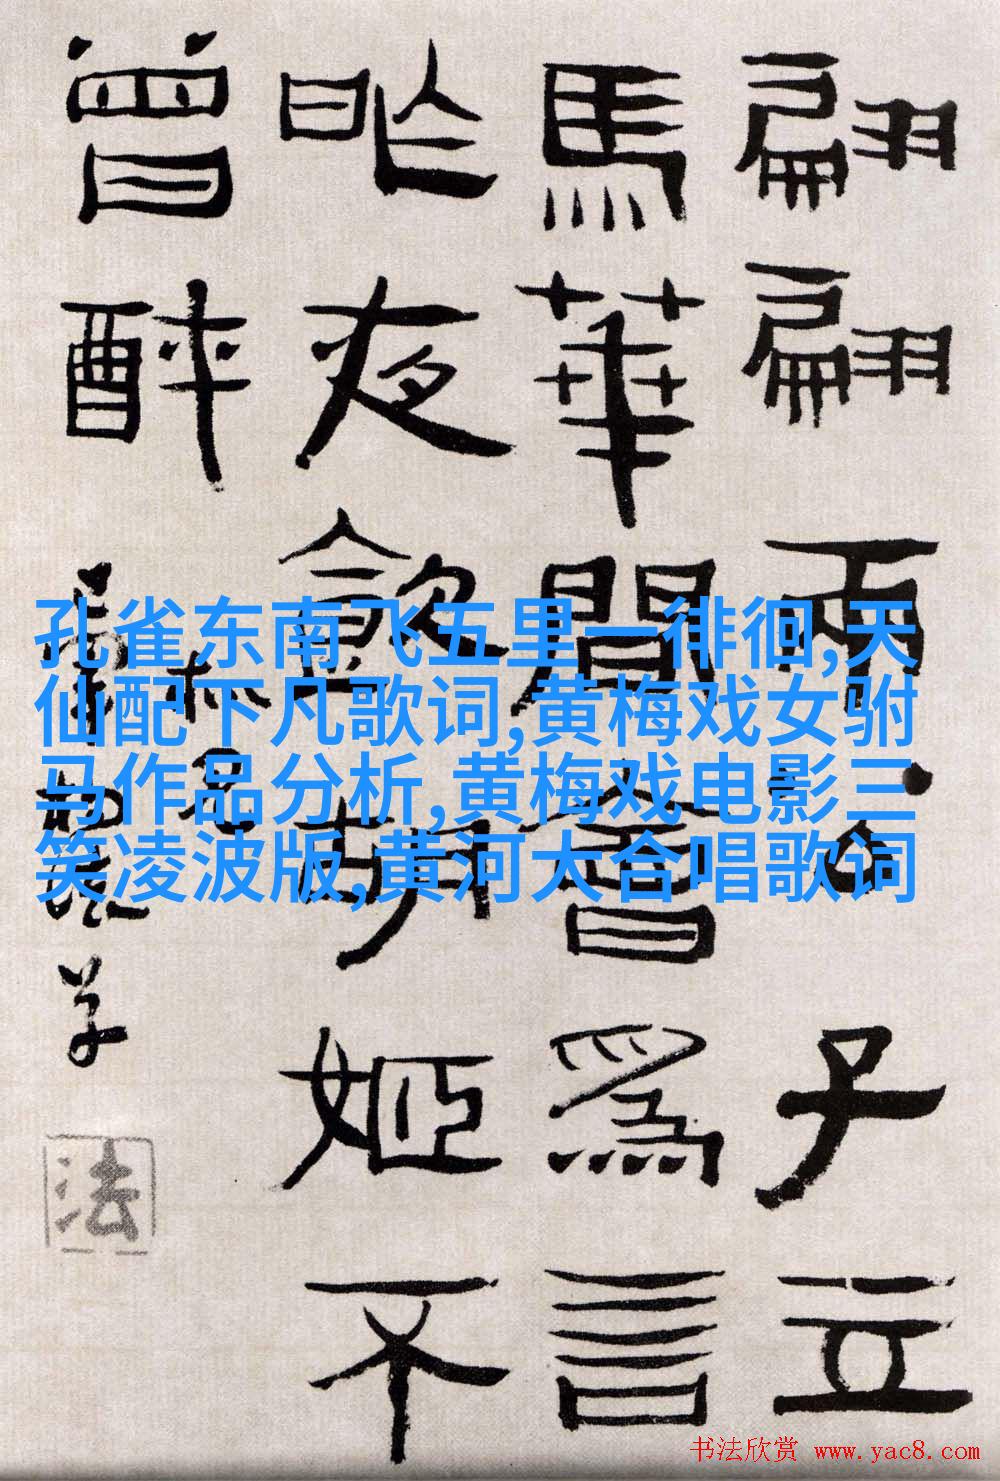 翩翩兩公子立
馬華間會為言
昨夜飲胡姬不
曾醉
孔雀东南飞五里一徘徊,天
仙配下凡歌词,黄梅戏女驸
马作品分析,黄梅戏电影三
笑凌波版,黄河大合唱歌词
法
书法欣赏 www.yac8.com